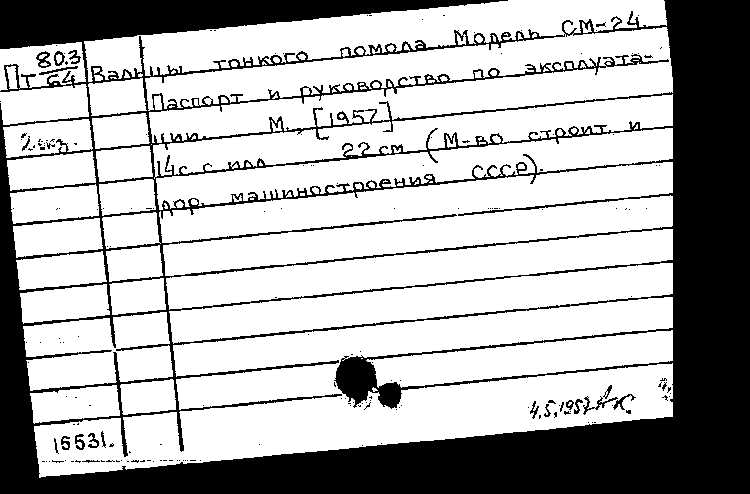 Пт 80.3/64 Вальцы тонкого помола. Модель СМ-24.
Паспорт и руководство по эксплуата-
2 экз. ции. М., [1957].
14 с. с илл. 22 см (М-во строит. и
дор. машиностроения СССР).
4.5.1957
16531.